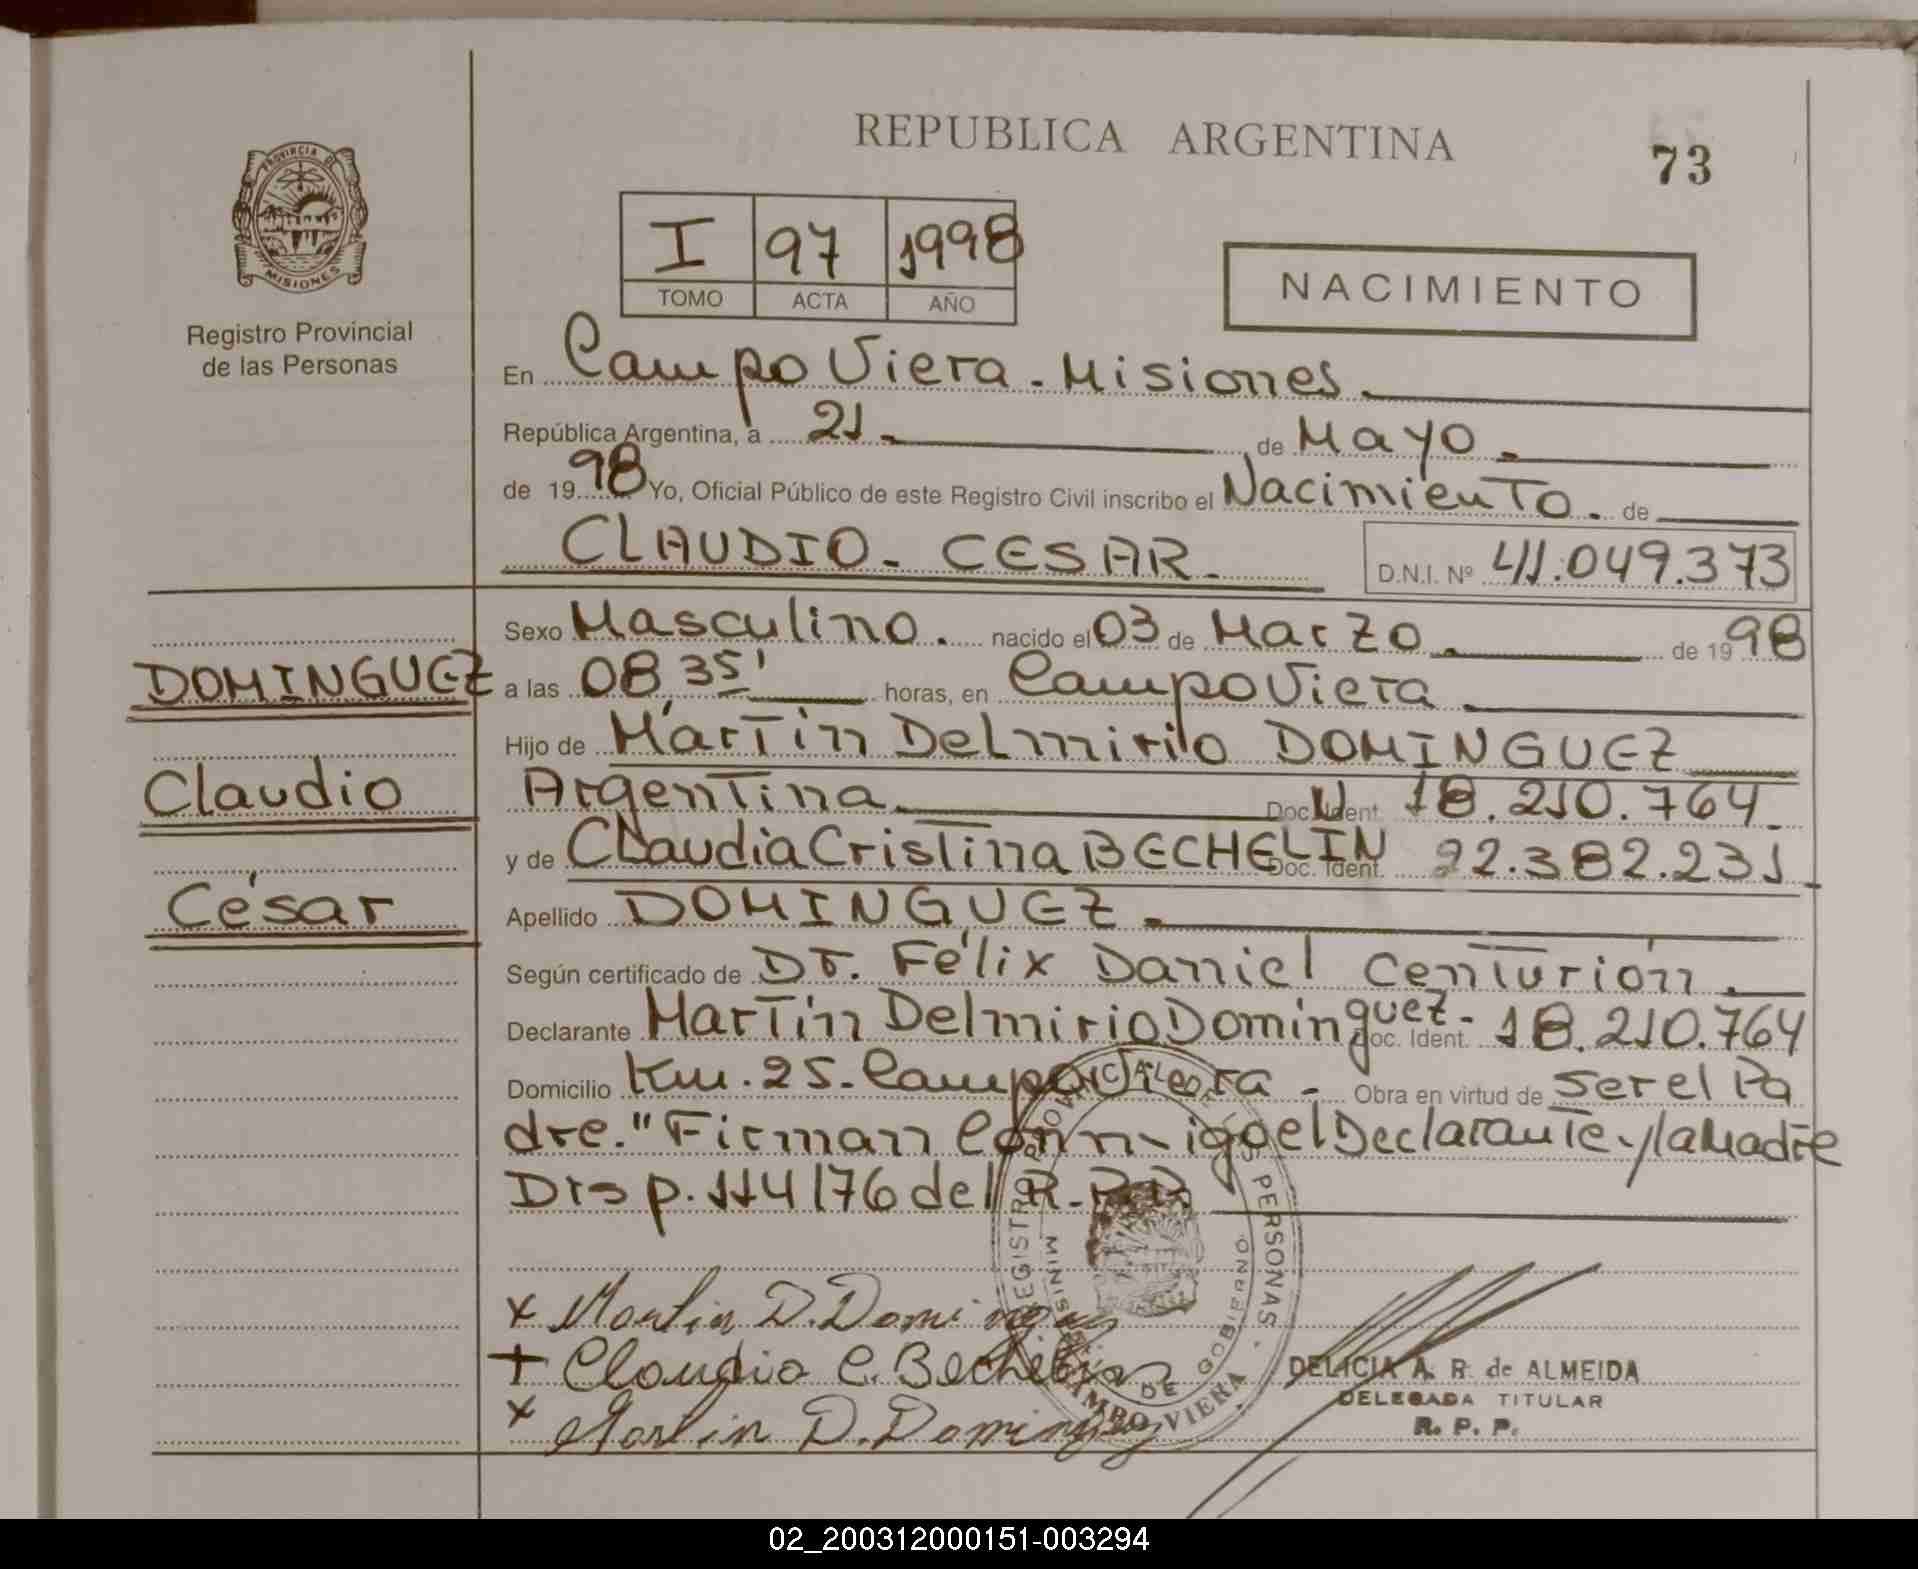 REPUBLICA ARGENTINA
73
PROVINCIA DE
MISIONES
Registro Provincial
de las Personas
I 97 1998
TOMO ACTA AÑO
NACIMIENTO
En Campo Viera - Misiones
República Argentina, a 21 de Mayo
de 1998 Yo, Oficial Público de este Registro Civil inscribo el Nacimiento de
CLAUDIO - CESAR - D.N.I. Nº 41.049.373
Sexo Masculino. nacido el 03 de Marzo de 1998
DOMINGUEZ
a las 08,35' horas, en Campo Viera
Hijo de Martín Delmirio DOMINGUEZ
Claudio
Argentina Doc. Ident. 18.210.764
y de Claudia Cristina BECHELIN Doc. Ident. 22.382.231
César
Apellido DOMINGUEZ
Según certificado de Dr. Félix Daniel Centurión
Declarante Martín Delmirio Dominguez - Doc. Ident. 18.210.764
Domicilio Km. 25 - Campo Viera - Obra en virtud de ser el Pa
dre. "Firman Conmigo el Declarante y la Madre
Disp. 114/76 del R.P.P.
REGISTRO PROVINCIAL DE LAS PERSONAS
DE GOBIERNO
CAMPO VIERA
x Martin D. Dominguez
+ Claudia C. Bechelin
x Martin D. Dominguez
DELICIA A. R. de ALMEIDA
DELEGADA TITULAR
R. P. P.
02_200312000151-003294